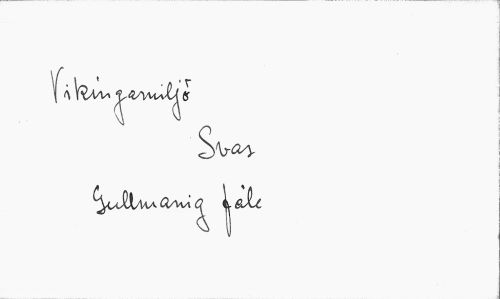 Vikingamiljö
Svar
Gullmanig fåle